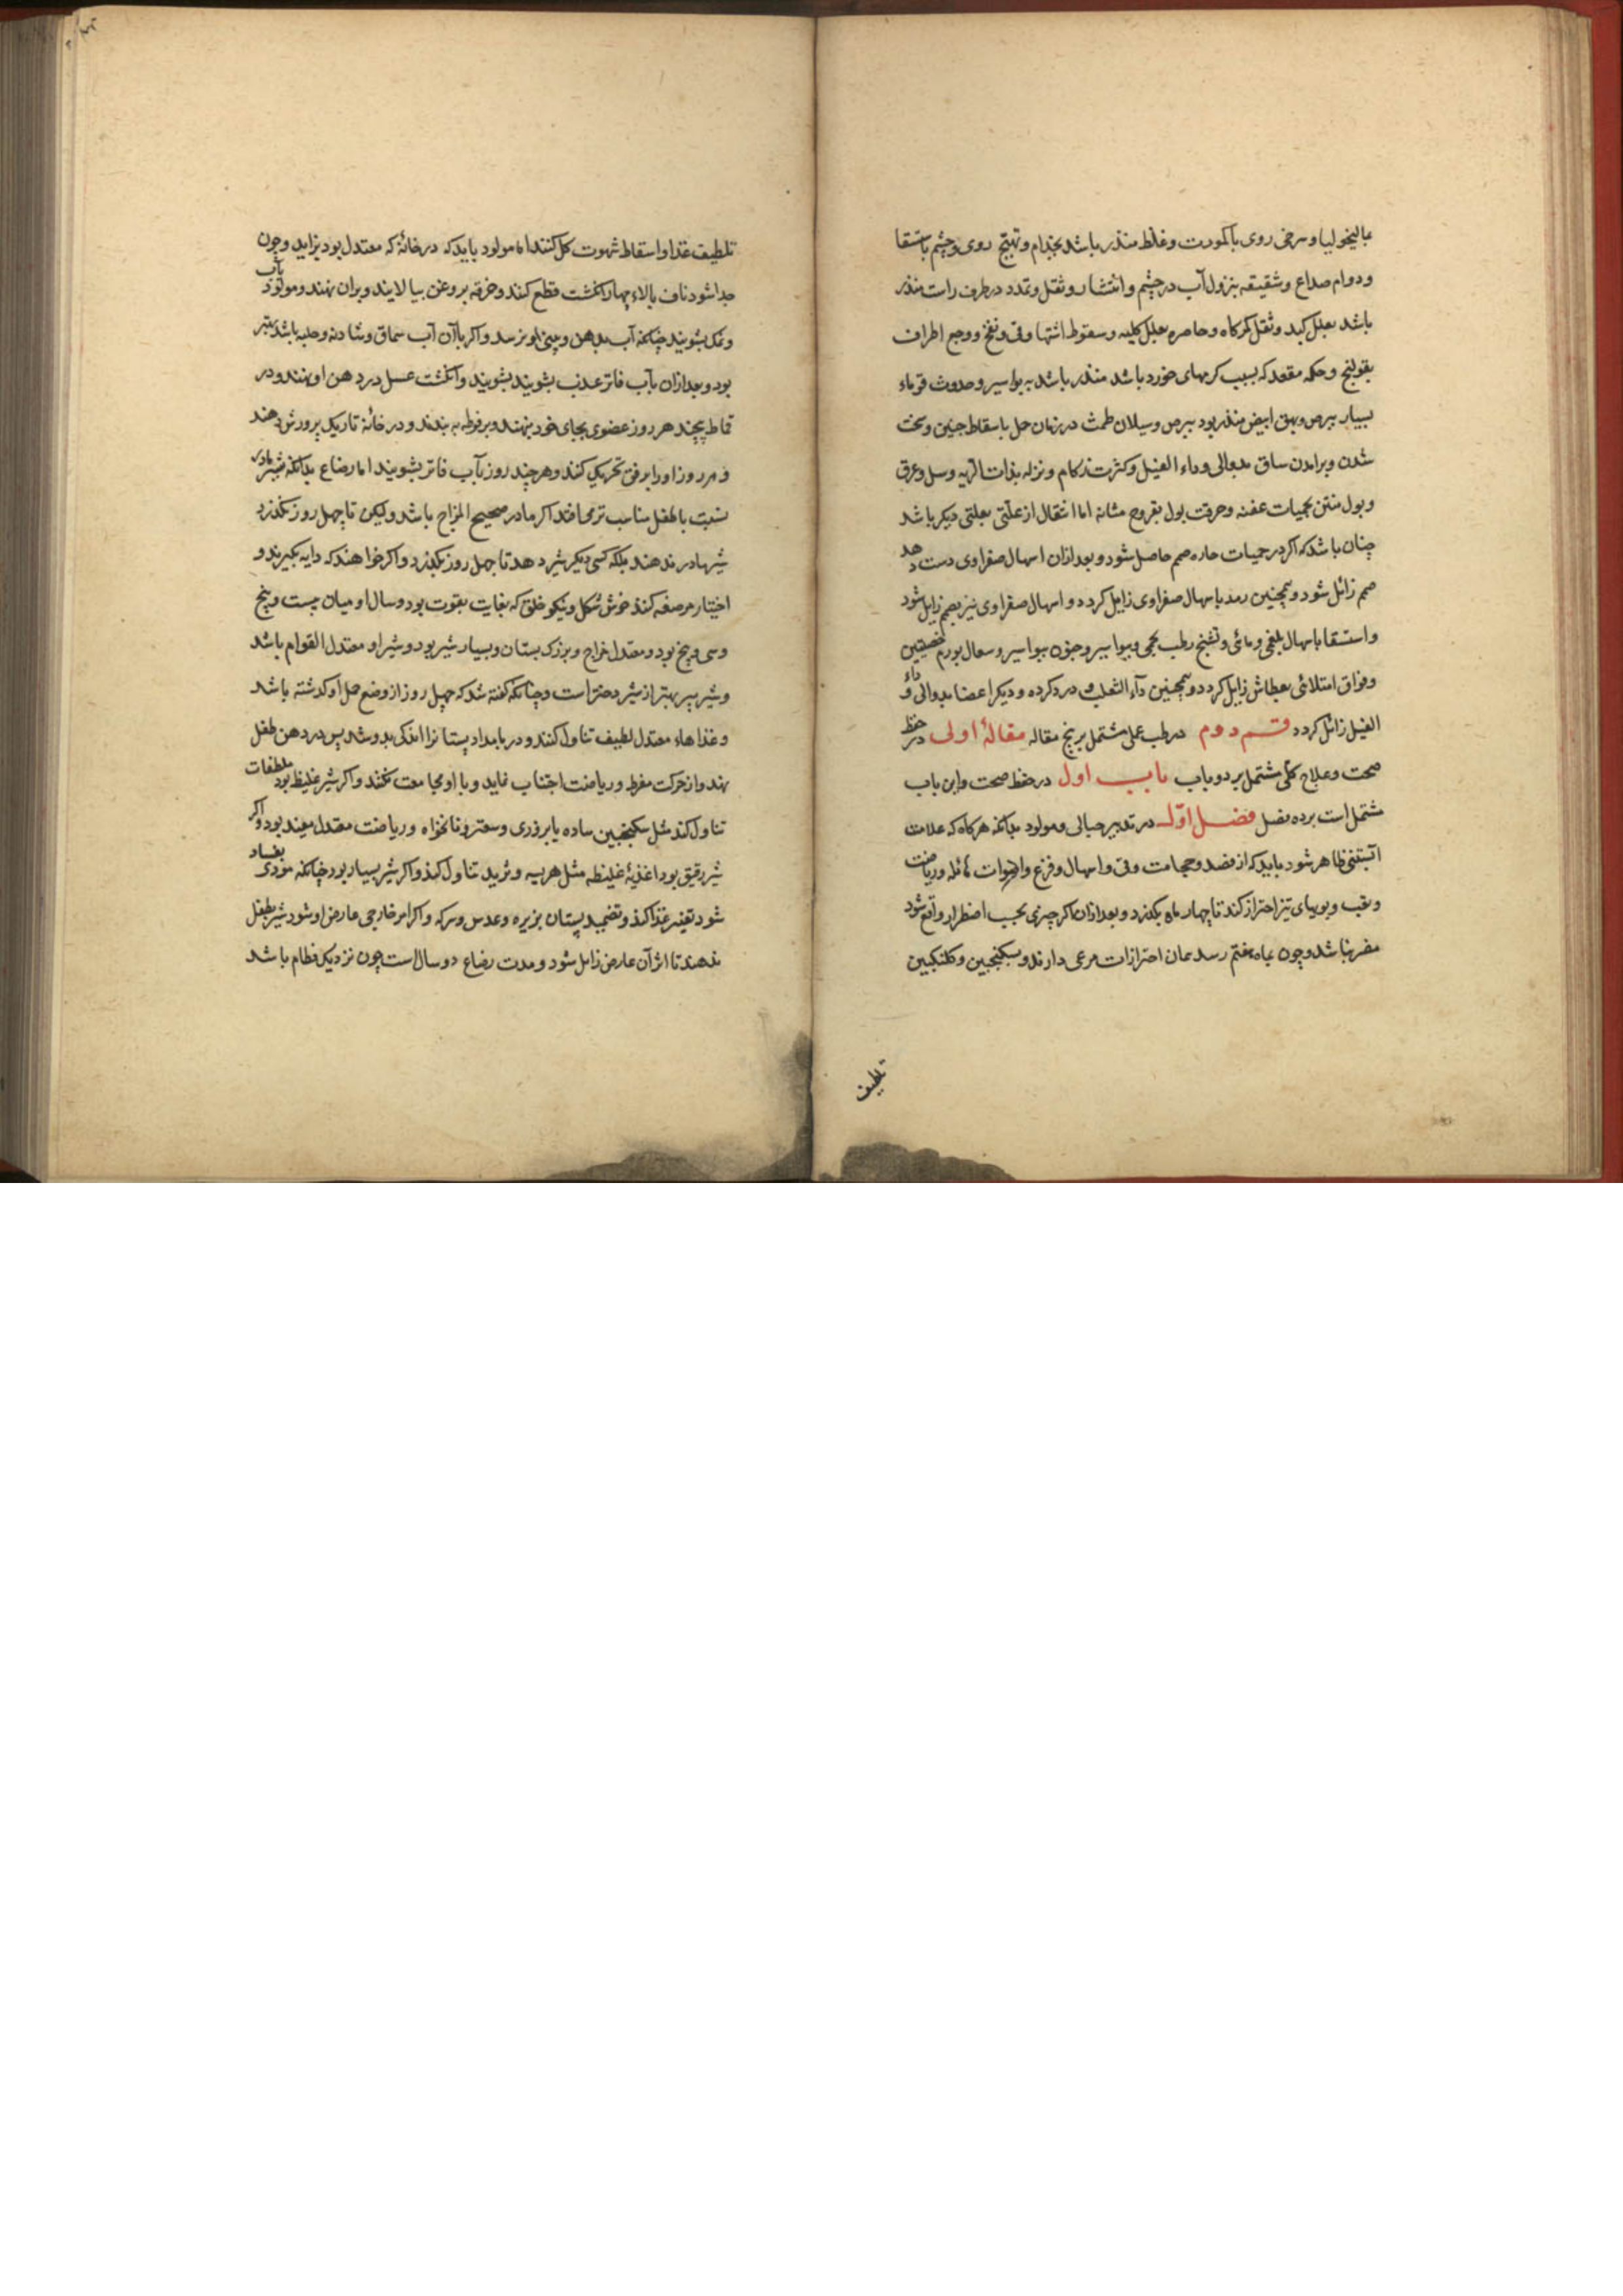 بمالیخولیا و سرخی روی با کمودت و غلظ منذر باشد بجذام و تهبج روی و چشم باستسقا
و دوام صداع و شقیقه بنزول آب در چشم و انتشار و ثقل و تمدد در طرف راست منذر
باشد بعلل کبد و ثقل کمرکاه و خاصره بعلل کلیه و سقوط اشتها و قی و نفخ و وجع اطراف
بقولنج و حکه مقعد که بسبب کرمهای خورد باشد منذر باشد به بواسیر و حدوث قوباء
بسیار ببرص و بهق ابیض منذر بود ببرص و سیلان طمث در زمان حمل باسقاط جنین و سخت
شدن و برامدن ساق بدوالی و داء الفیل و کثرت زکام و نزله بذات الریه و سل و عرق
و بول منتن بحمیات عفنه و حرقت بول بقروح مثانه اما انتقال از علتی بعلتی دیکر باشد
چنان باشد که اکر در حمیات حاره صمم حاصل شود و بعد ازان اسهال صفراوی دست دهد
صمم زائل شود و همچنین رمد باسهال صفراوی زایل کردد و اسهال صفراوی نیز بصمم زایل شود
و استسقا باسهال بلغمی و مائی و تشنج رطب بحمی و ببواسیر و جنون ببواسیر و سعال بورم خصیتین
و فواق امتلائی بعطاش زایل کردد و همچنین دآء الثعلب و درد کرده و دیکر اعضا بدوالی و داء
الفیل زائل کردد قسم دوم در طب عملی مشتمل بر پنج مقاله مقالهٔ اولی در حفظ
صحت و علاج کلی مشتمل بر دو باب باب اول در حفظ صحت و این باب
مشتمل است بر ده فصل فصل اوّل در تدبیر حبالی و مولود بدانکه هرکاه که علامت
آبستنی ظاهر شود باید که از فصد و حجامت و قی و اسهال و فزع و اصوات هائله و ریاضت
و تعب و بویهای تیز احتراز کند تا چهار ماه بکذرد و بعد ازان اکر چیزی بحسب اضطرار واقع شود
مضر نباشد و چون بماه هفتم رسد همان احترازات مرعی دارند و بسکنجبین و کلنکبین
تلطیف
تلطیف غذا و اسقاط شهوت کل کنند اما مولود باید که در خانهٔ که معتدل بود بزاید و چون
جدا شود ناف بالاء چهار انکشت قطع کنند و خرقه بروغن بیالایند و بران نهند و مولود بآب
و نمک بشویند چنانکه آب بدهن و بینی او نرسد و اکر با آن آب سماق و شادنه و حلبه باشد بهتر
بود و بعد ازان بآب فاتر عذب بشویند بشویند و انکشت عسل در دهن او نهند و در
قماط پیچند هر روز عضوی بجای خود بنهند و برفوطه بندند و در خانهٔ تاریک پرورش دهند
و هر روز او را برفق تحریک کنند و هر چند روز بآب فاتر بشویند اما رضاع بدانکه شیر مادر
بنسبت با طفل مناسب تر می افتد اکر مادر صحیح المزاج باشد و لیکن تا چهل روز نکذرد
شیر مادر ندهند بلکه کسی دیکر شیر دهد تا چهل روز بکذرد و اکر خواهند که دایه بکیرند و
اختیار مرضعه کنند خوش شکل و نیکو خلق که بغایت بقوت بود و سال او میان بیست و پنج
و سی و پنج بود و معتدل مزاج و بزرک پستان و بسیار شیر بود و شیر او معتدل القوام باشد
و شیر پسر بهتر از شیر دختر است و چنانکه کفته شد که چهل روز از وضع حمل او کذشته باشد
و غذاهاء معتدل لطیف تناول کنند و در بامداد پستانرا اندکی بدوشد پس در دهن طفل
نهد و از حرکت مفرط و ریاضت اجتناب نماید و با او مجامعت نکنند و اکر شیر غلیظ بود ملطفات
تناول کند مثل سکنجبین ساده یا بزوری و سعتر و نانخواه و ریاضت معتدل مفید بود و اکر
شیر رقیق بود اغذیهٔ غلیظه مثل هریسه و ثرید تناول کند و اکر شیر بسیار بود چنانکه مودی بفساد
شود تغییر غذا کند و تضمید پستان بزیره و عدس و سرکه و اکر امر خارجی عارض او شود شیر بطفل
ندهند تا اثر آن عارض زایل شود و مدت رضاع دو سال است چون نزدیک فطام باشد